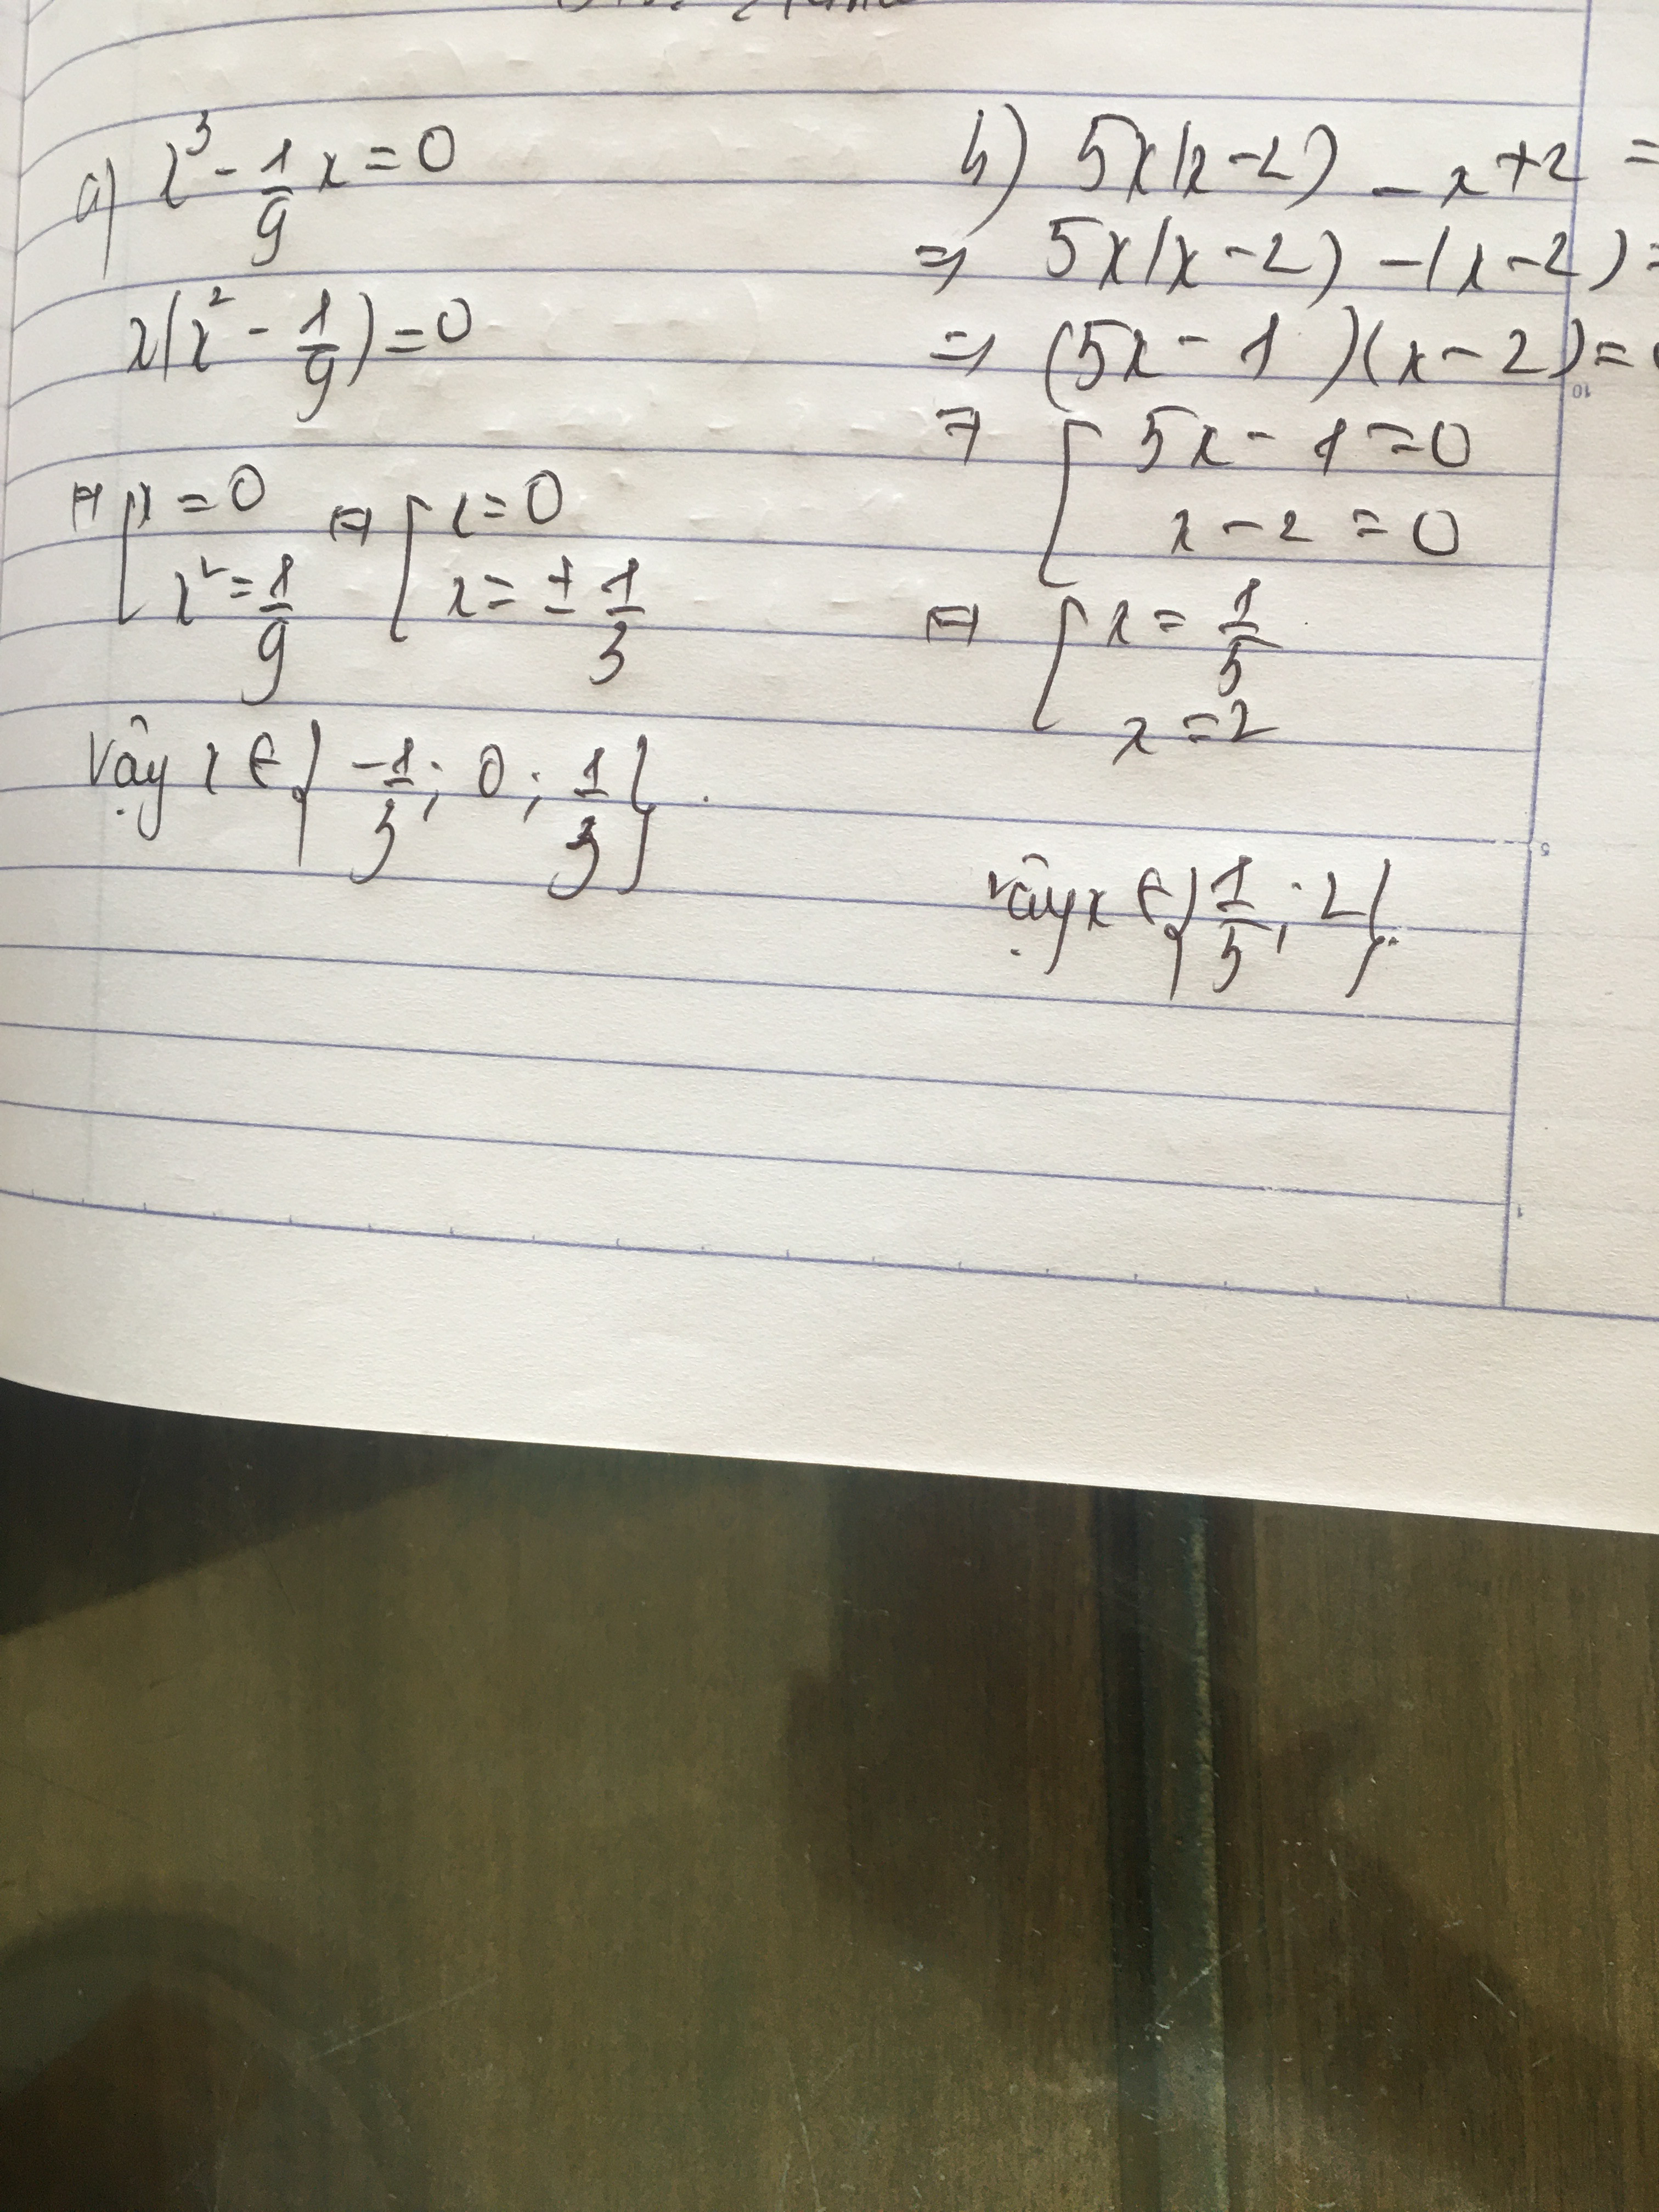 a) x³ - 1/9 x = 0
x(x² - 1/9) = 0
⇔ [ x = 0 ⇔ [ x = 0
x² = 1/9 x = ± 1/3
Vậy x ∈ { -1/3 ; 0 ; 1/3 } .
b) 5x(x-2) - x+2 =
⇒ 5x(x-2) -(x-2) =
⇒ (5x - 1)(x-2) = 0
⇒ [ 5x - 1 = 0
x - 2 = 0
⇔ [ x = 1/5
x = 2
Vậy x ∈ { 1/5 ; 2 } .
10
5
1